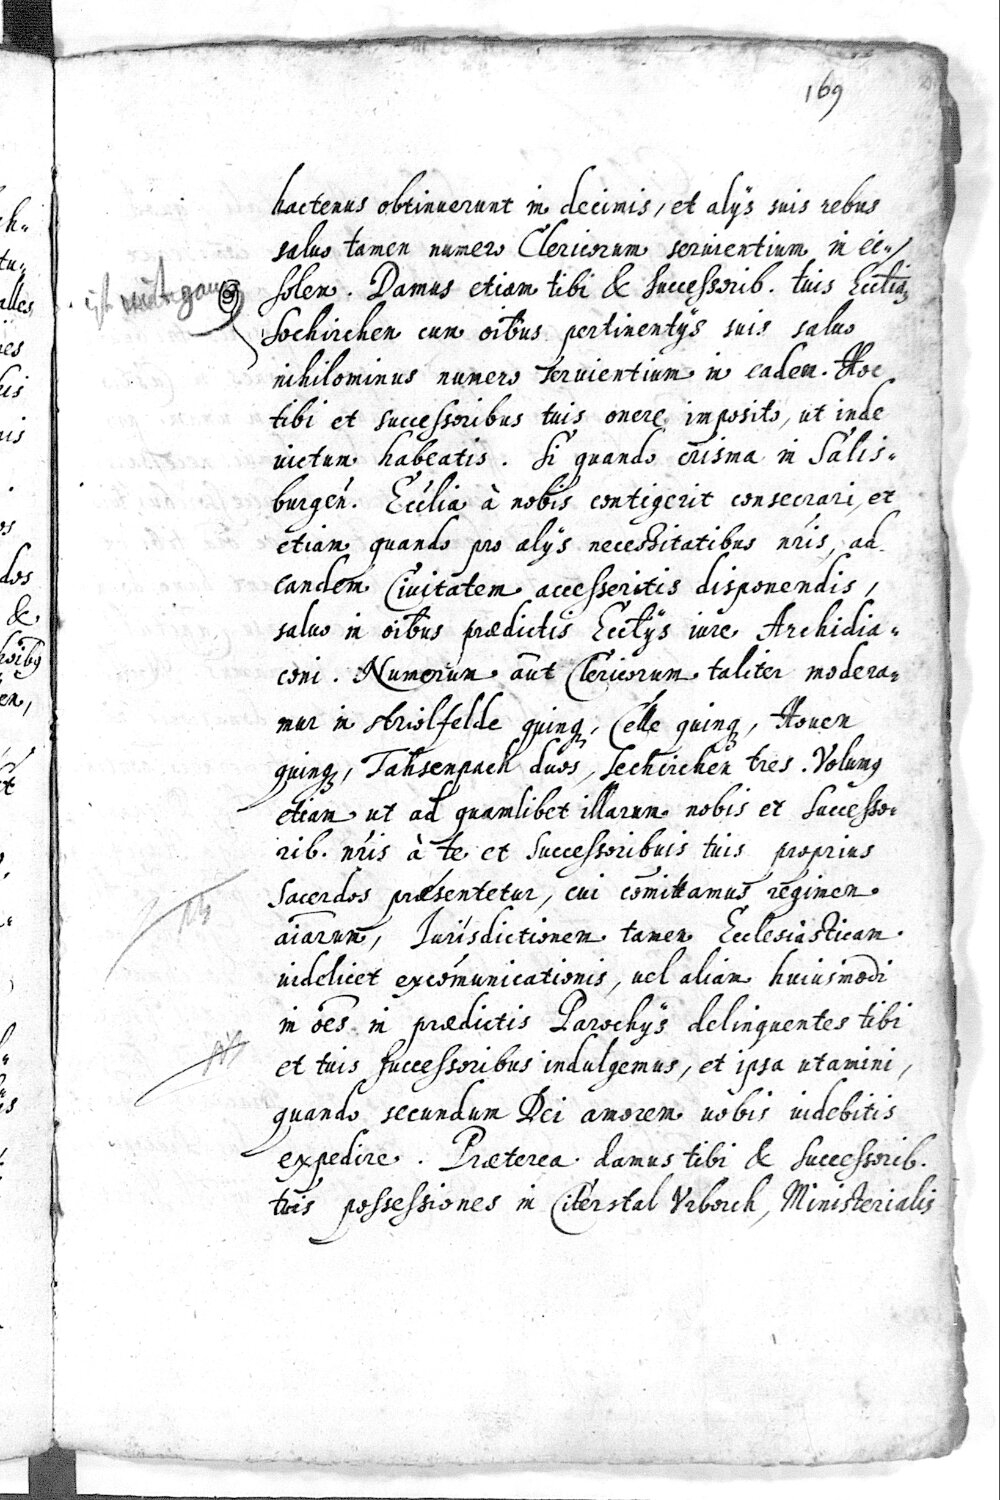 169
hactenus obtinuerunt in decimis, et alijs suis rebus
saluo tamen numero Clericorum seruientium in ec-
solen. Damus etiam tibi & successorib. tuis Eccliã
Sechirchen cum oĩbus pertinentijs suis saluo
nihilominus numero seruientium in eadem. Hoc
tibi et successoribus tuis onere imposito, ut inde
uictum habeatis. Si quando crisma in Salis-
burgeñ. Ecćlia à nobis contigerit consecrari, et
etiam quando pro alijs necessitatibus nr̃is, ad
eandem Ciuitatem accesseritis disponendis,
saluo in oĩbus prædictis Eccl̃ijs iure Archidia-
coni. Numerum aũt Clericorum taliter modera-
mur in quinq, Celle quinq, Houen
quinq, Tahsenpach duos, Sechirchen tres. Volumq
etiam ut ad quamlibet illarum nobis et successo-
rib. nr̃is à te et successoribuis tuis proprius
Sacerdos præsentetur, cui com̃ittamus regimen
aĩarum, Iurisdictionem tamen Ecclesiasticam
uidelicet excom̃unicationis, uel aliam huiusmodi
in oẽs in prædictis Parochijs delinquentes tibi
et tuis successoribus indulgemus, et ipsa utamini,
quando secundum Dei amorem uobis uidebitis
expedire. Præterea damus tibi & successorib.
tuis possessiones in Citerstal Vrborch, Ministerialis